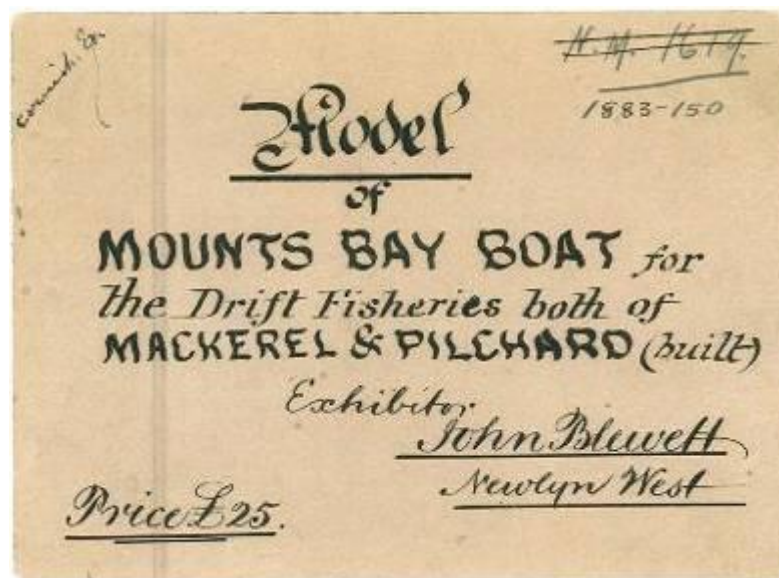 Cornish. Ex.
N.M. 1619.
1883-150
Model
of
MOUNTS BAY BOAT for
the Drift Fisheries both of
MACKEREL & PILCHARD (built)
Exhibitor
John Blewett
Newlyn West
Price £25.